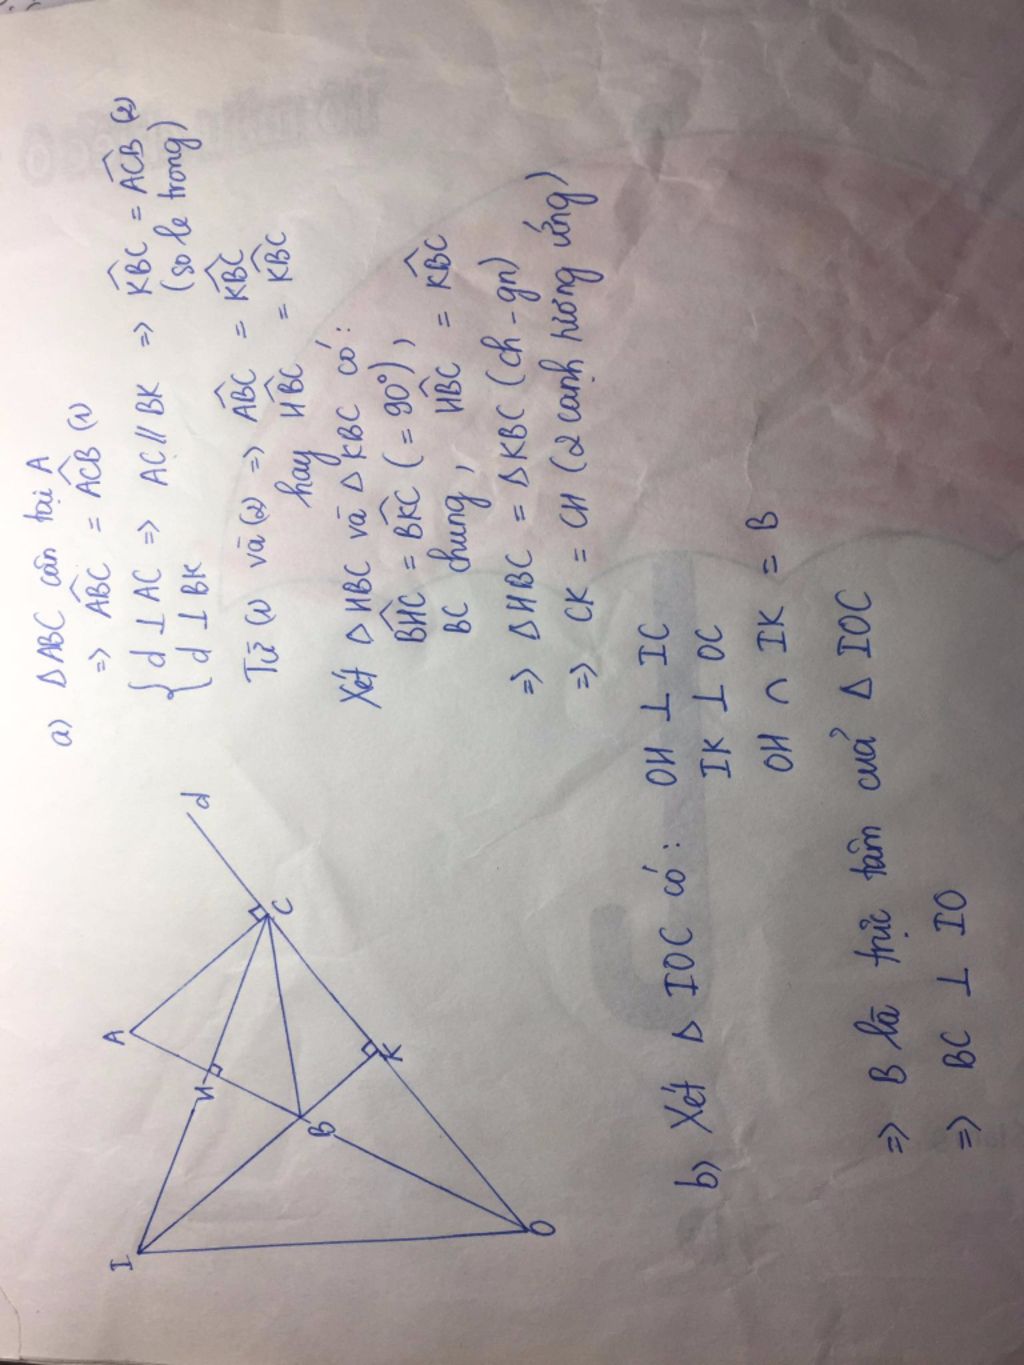 a) ΔABC cân tại A
=> ABC̑ = ACB̑ (1)
{ d ⊥ AC => AC // BK => KBC̑ = ACB̑ (2)
d ⊥ BK (so le trong)
Từ (1) và (2) => ABC̑ = KBC̑
hay HBC̑ = KBC̑
Xét Δ HBC và Δ KBC có:
BHC̑ = BKC̑ (= 90°),
BC chung, HBC̑ = KBC̑
=> ΔHBC = ΔKBC (ch - gn)
=> CK = CH (2 cạnh tương ứng)
A
d
I
H
C
B
K
O
b) Xét Δ IOC có: OH ⊥ IC
IK ⊥ OC
OH ∩ IK = B
=> B là trực tâm của Δ IOC
=> BC ⊥ IO